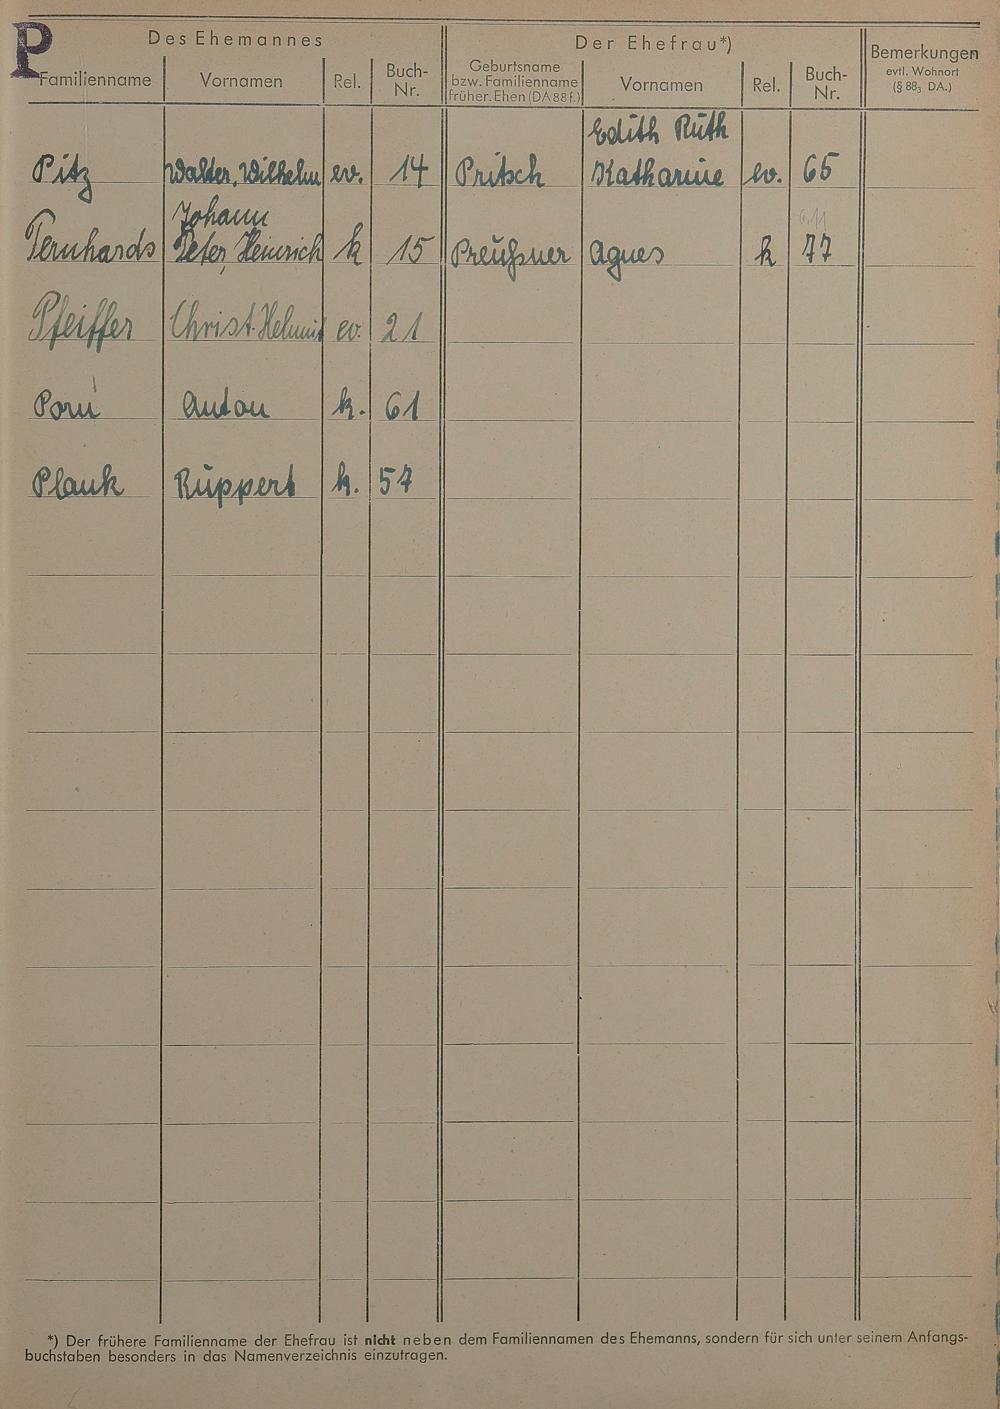 P
Des Ehemannes
Der Ehefrau*)
Bemerkungen
evtl. Wohnort
(§ 88₃ DA.)
Familienname
Vornamen
Rel.
Buch-
Nr.
Geburtsname
bzw. Familienname
früher. Ehen (DA 88 f.)
Vornamen
Rel.
Buch-
Nr.
Edith Ruth
Pitz Walter, Wilhelm ev. 14 Pritsch Katharine ev. 65
Johann
Pernhards Peter, Heinrich k 15 Preußner Agnes k 77
Pfeiffer Christ. Helmut ev. 21
Anton k. 61
Plank Rüppert k. 57
*) Der frühere Familienname der Ehefrau ist nicht neben dem Familiennamen des Ehemanns, sondern für sich unter seinem Anfangs-
buchstaben besonders in das Namenverzeichnis einzutragen.